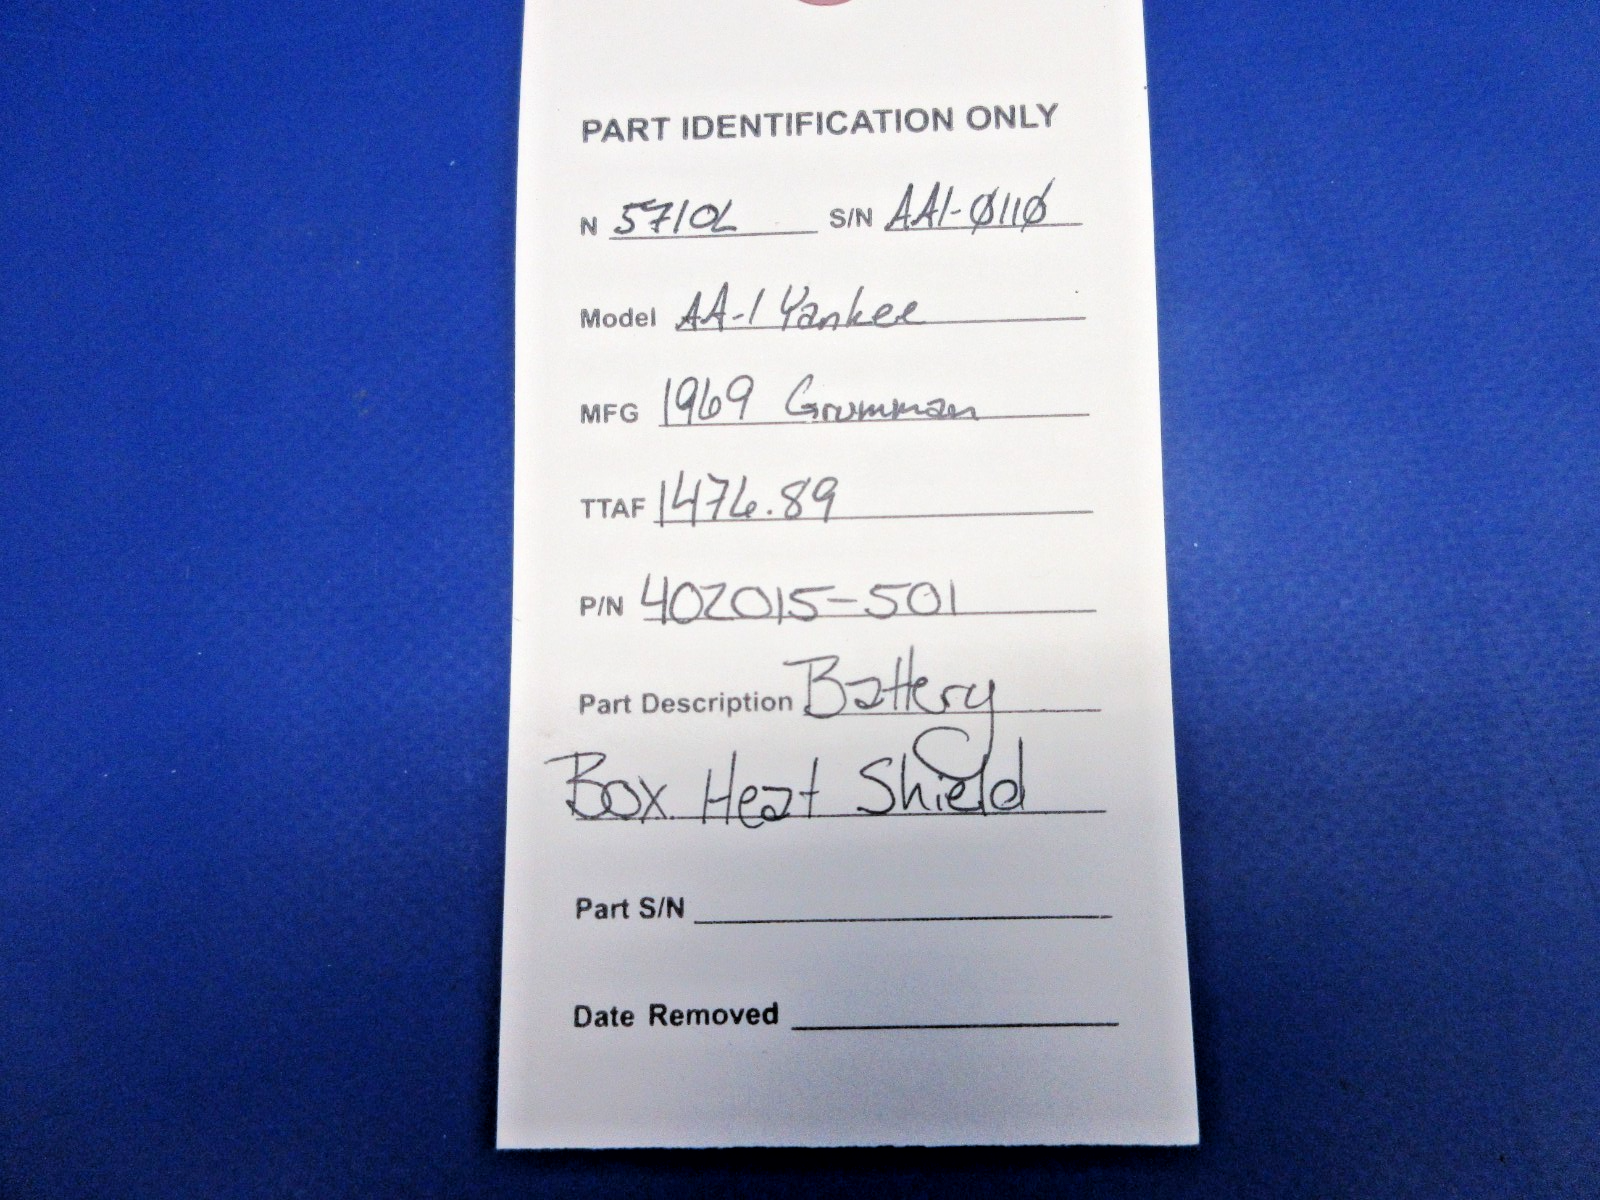 PART IDENTIFICATION ONLY
N 5710L S/N AA1-Ø11Ø
Model AA-1 Yankee
MFG 1969 Grumman
TTAF 1476.89
P/N 402015-501
Part Description Battery
Box Heat Shield
Part S/N
Date Removed